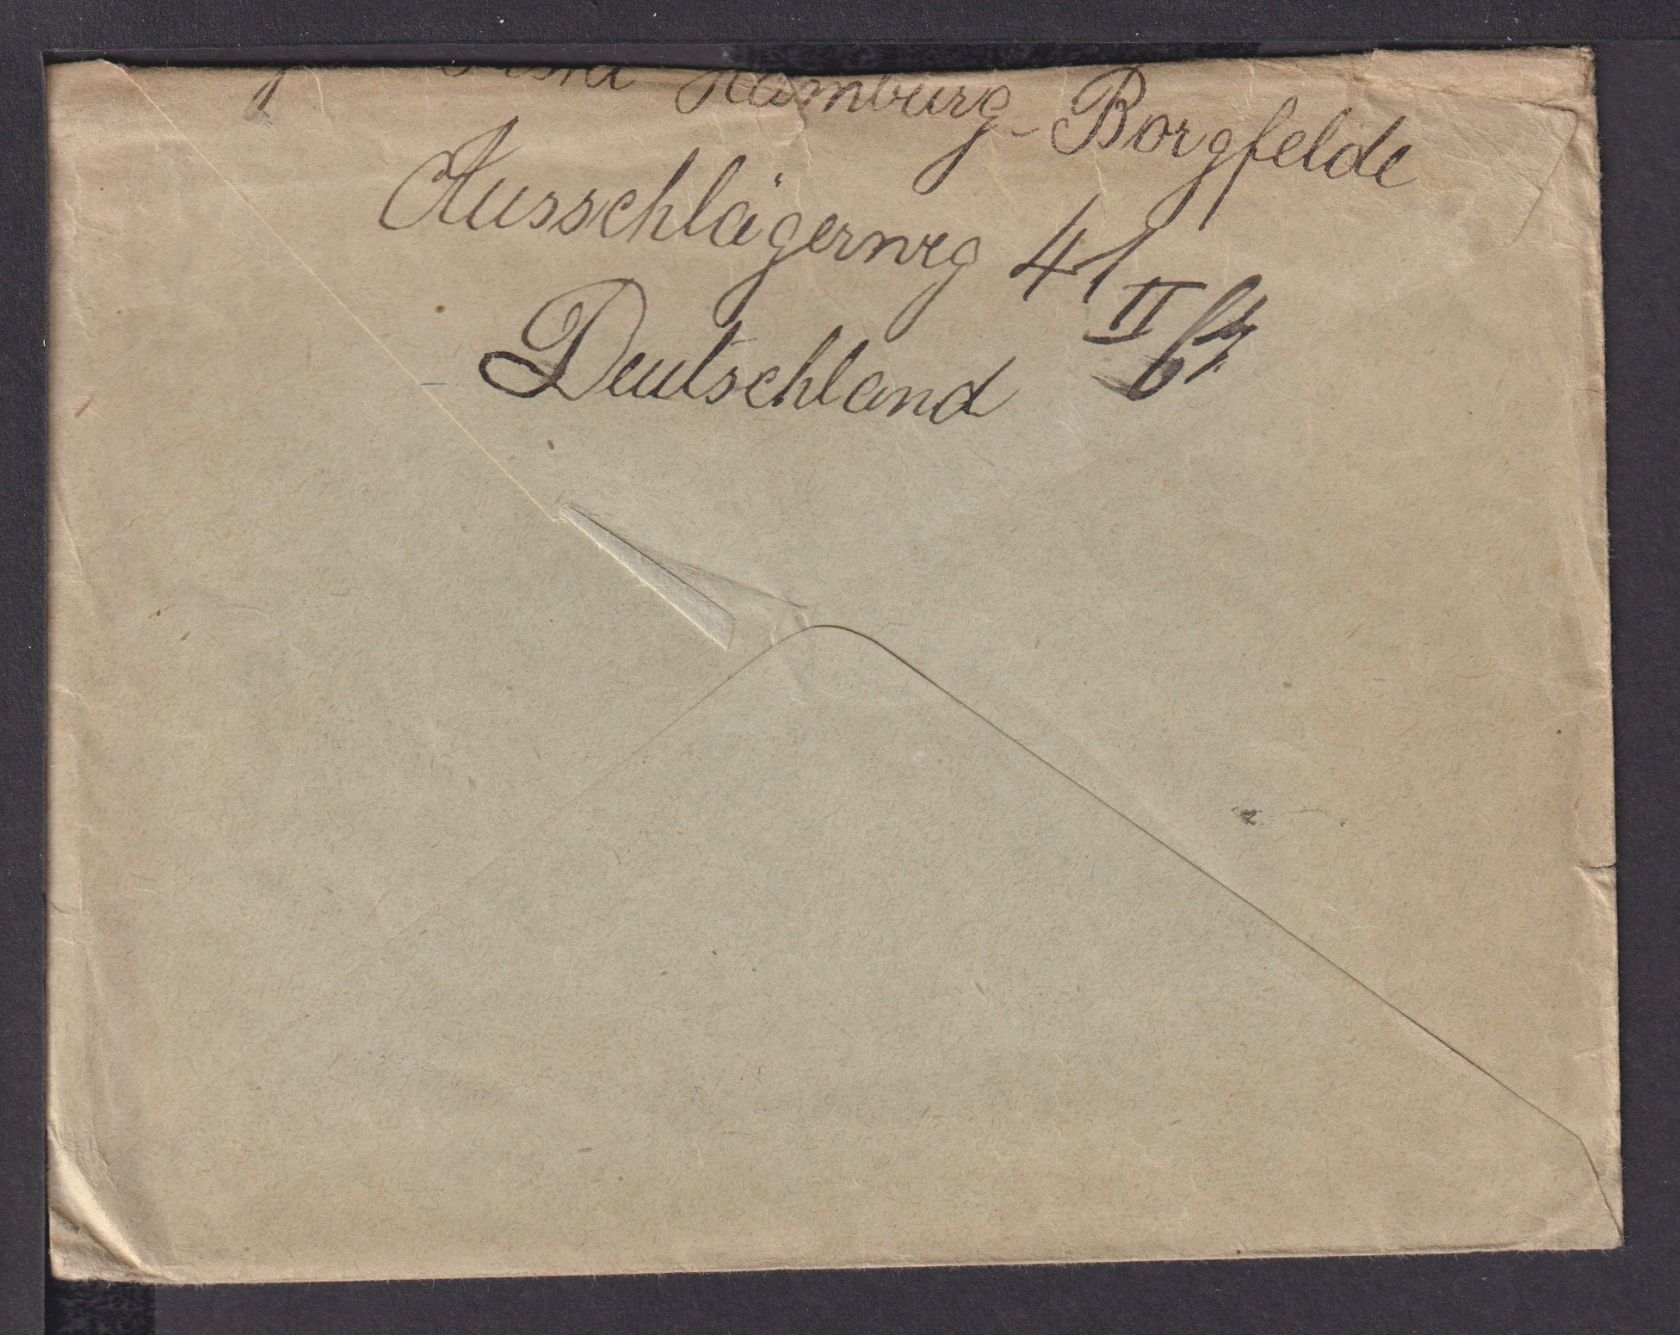 Hamburg-Borgfelde
Ausschlägerweg 41
II
Deutschland